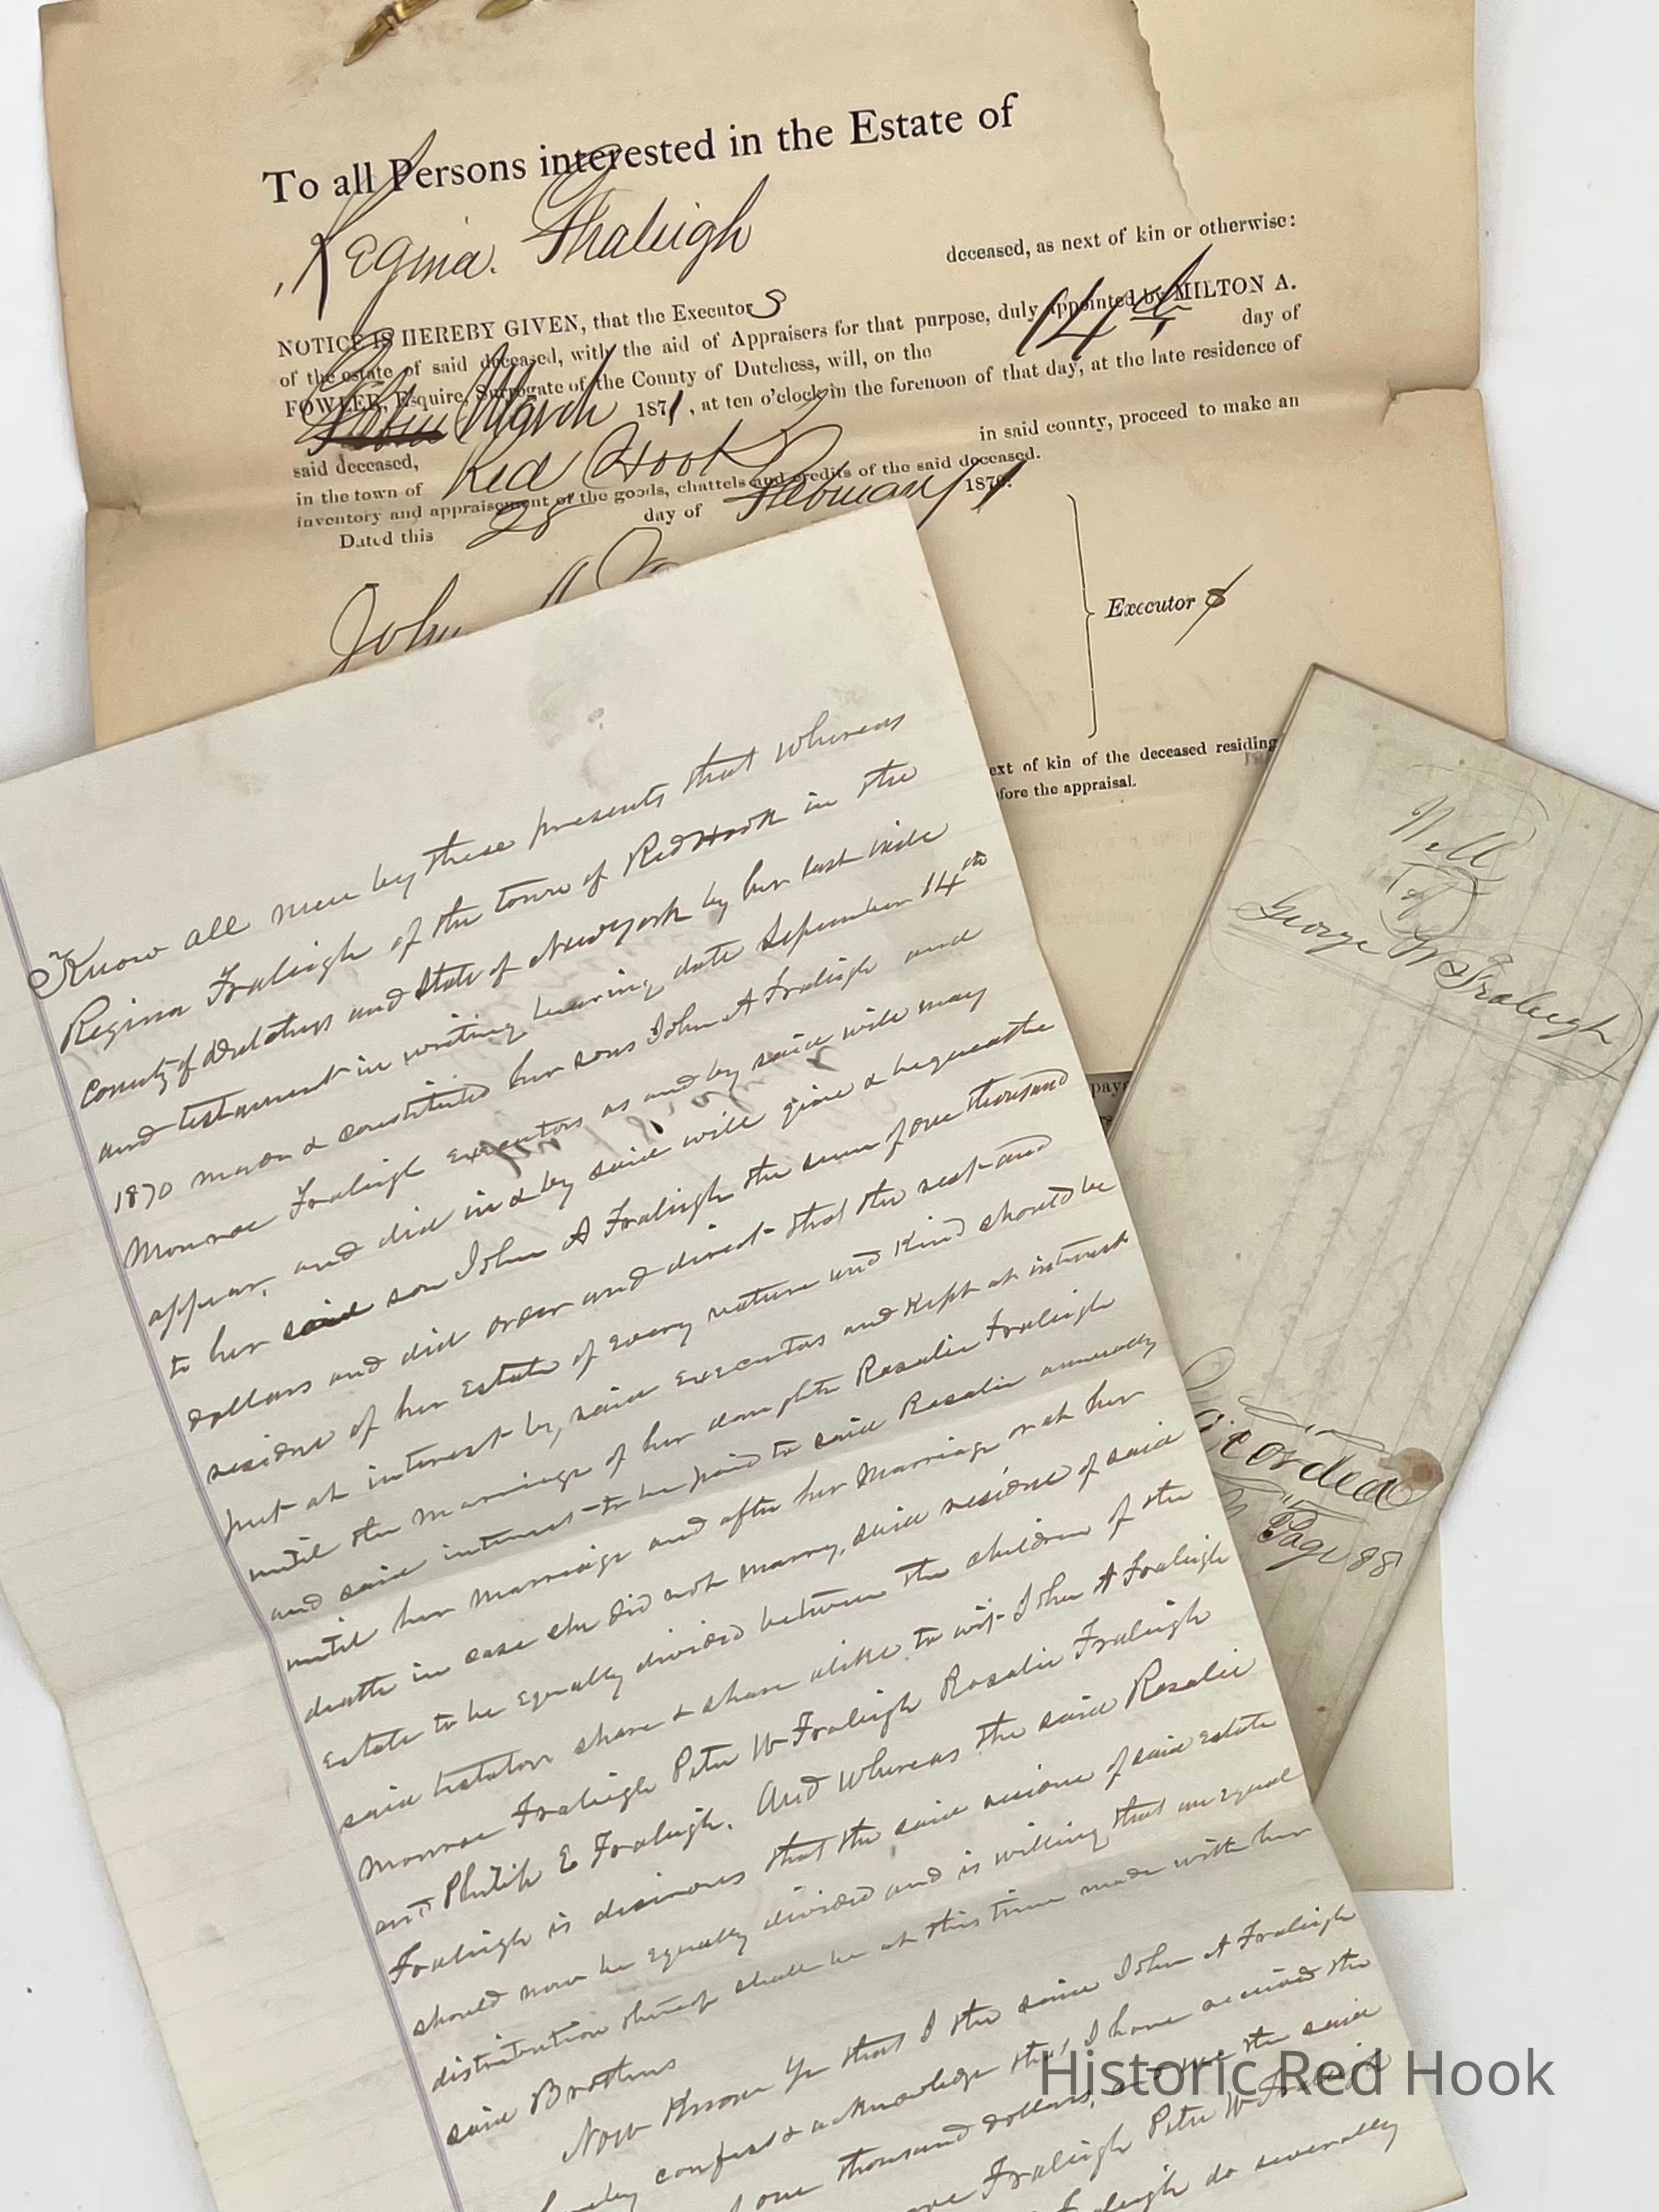 To all Persons interested in the Estate of
Regina. Fraleigh
deceased, as next of kin or otherwise:
NOTICE IS HEREBY GIVEN, that the Executors
of the estate of said deceased, with the aid of Appraisers for that purpose, duly appointed by MILTON A.
FOWLER, Esquire, Surrogate of the County of Dutchess, will, on the 14th day of
March 1871, at ten o'clock in the forenoon of that day, at the late residence of
said deceased,
in the town of Red Hook in said county, proceed to make an
inventory and appraisement of the goods, chattels and credits of the said deceased.
Dated this 28 day of February 1871.
John A
Executors
ext of kin of the deceased residing
fore the appraisal.
Know all men by these presents that whereas
Regina Fraleigh of the town of Red Hook in the
County of Dutchess and State of New york by her last will
and testament in writing bearing date September 14th
1870 made & constituted her sons John A Fraleigh and
Monroe Fraleigh Executors as and by said will may
appear, and did in & by said will give & bequeathe
to her said son John A Fraleigh the sum of one thousand
dollars and did order and direct that the rest and
residue of her Estate of every nature and Kind should be
put at interest by said Executors and Kept at interest
until the marriage of her daughter Rosalie Fraleigh
and said interest to be paid to said Rosalie annually
until her marriage and after her Marriage or at her
death in case she did not marry, said residue of said
Estate to be Equally divided between the children of the
said testator share & share alike to wit John A Fraleigh
Monroe Fraleigh Peter W Fraleigh Rosalie Fraleigh
and Philip E Fraleigh. And Whereas the said Rosalie
Fraleigh is desirous that the said residue of said Estate
should now be Equally divided and is willing that an Equal
distribution thereof shall be at this time made with her
said Brothers
Now Know Ye that I the said John A Fraleigh
hereby confess & acknowledge that I have received the
one thousand dollars, and we the said
Fraleigh Peter W Fraleigh
do severally
Will
of
George W Fraleigh
Recorded
Page 88
pay
Historic Red Hook